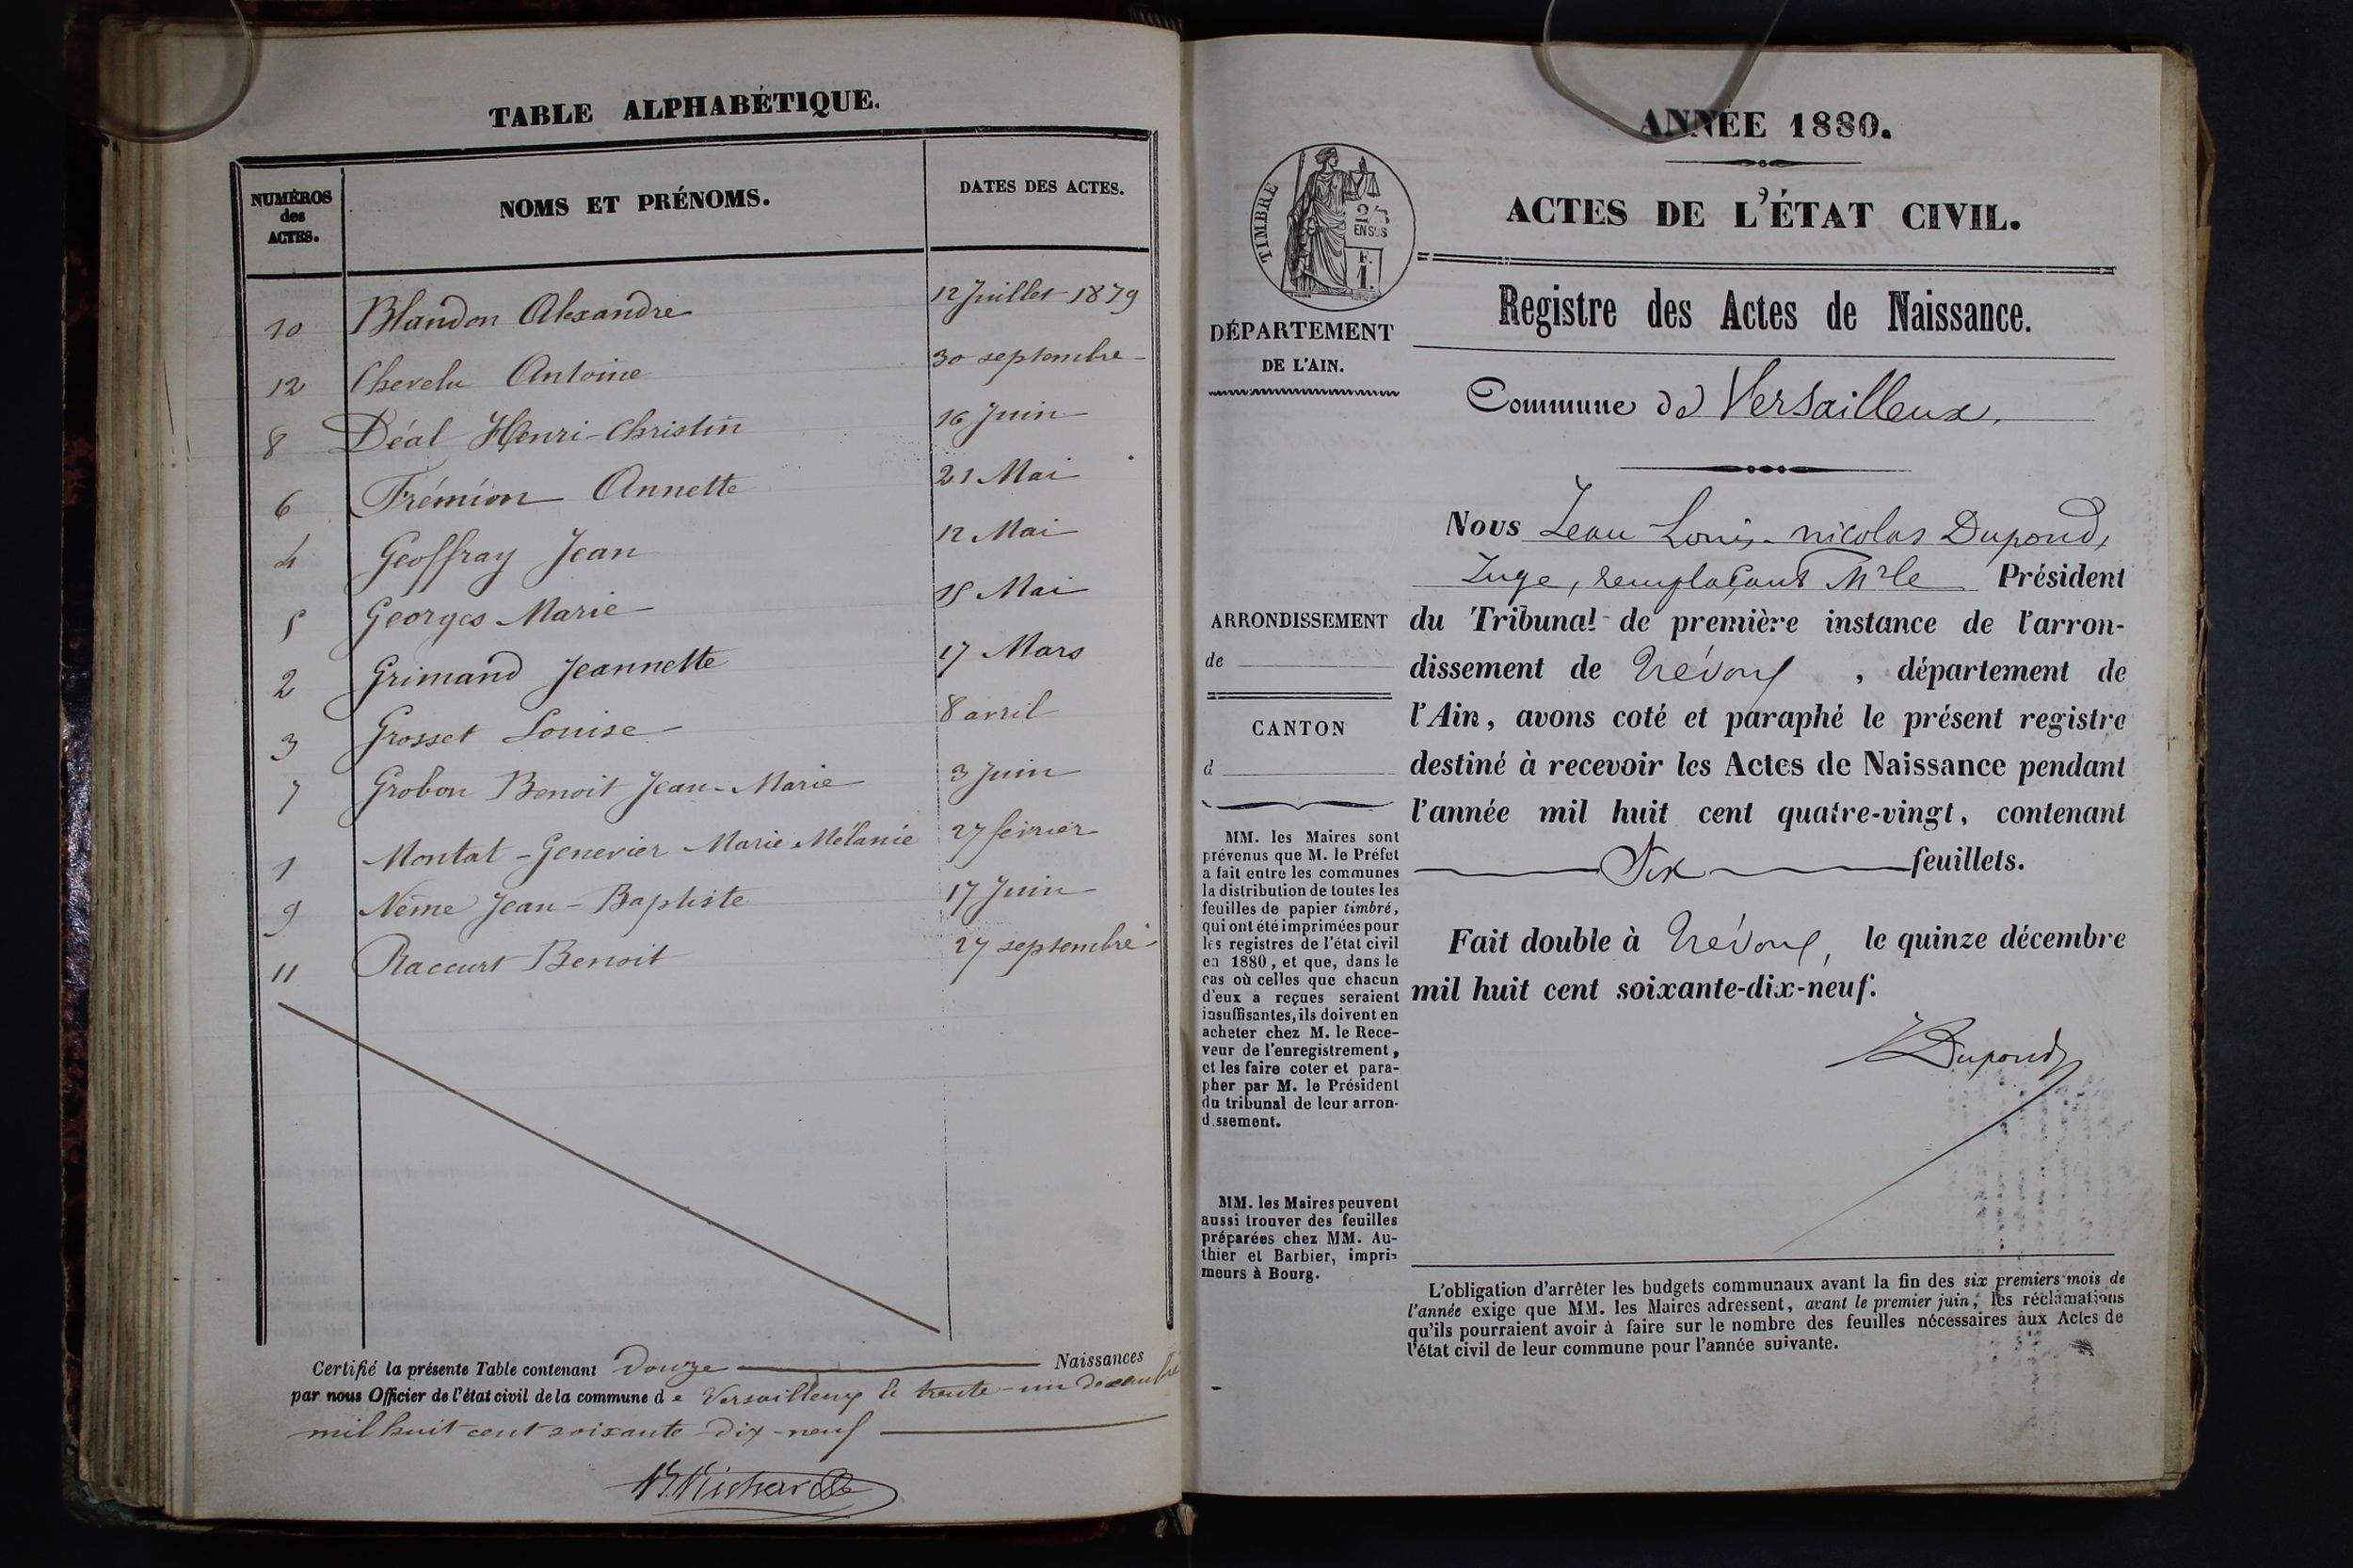 TABLE ALPHABÉTIQUE.
NUMÉROS des ACTES.
NOMS ET PRÉNOMS.
DATES DES ACTES.
10 Blandon Alexandre 12 Juillet 1879
12 Chevelu Antoine 30 septembre
8 Déal Henri-Christin 16 Juin
6 Frémion Annette 21 Mai
4 Geoffray Jean 12 Mai
5 Georges Marie 18 Mai
2 Grimand Jeannette 17 Mars
3 Grosset Louise 8 avril
7 Grobon Benoit Jean-Marie 3 Juin
1 Montat-Genevier Marie Mélanie 27 février
9 Nême Jean-Baptiste 17 Juin
11 Raccurt Benoit 27 septembre
Certifié la présente Table contenant Douze Naissances
par nous Officier de l'état civil de la commune de Versailleux le trente-un décembre
mil huit cent soixante-dix-neuf
ANNÉE 1880.
TIMBRE
2/10
EN SUS
F.
1.
ACTES DE L'ÉTAT CIVIL.
Registre des Actes de Naissance.
DÉPARTEMENT
DE L'AIN.
Commune de Versailleux.
Nous Jean Louis-nicolas Dupond,
Juge, remplaçant Mr le Président
du Tribunal de première instance de l'arron-
dissement de Trévoux, département de
l'Ain, avons coté et paraphé le présent registre
destiné à recevoir les Actes de Naissance pendant
l'année mil huit cent quatre-vingt, contenant
Six feuillets.
Fait double à Trévoux, le quinze décembre
mil huit cent soixante-dix-neuf.
Dupond
ARRONDISSEMENT
de
CANTON
d
MM. les Maires sont
prévenus que M. le Préfet
a fait entre les communes
la distribution de toutes les
feuilles de papier timbré,
qui ont été imprimées pour
les registres de l'état civil
en 1880, et que, dans le
cas où celles que chacun
d'eux a reçues seraient
insuffisantes, ils doivent en
acheter chez M. le Rece-
veur de l'enregistrement,
et les faire coter et para-
pher par M. le Président
du tribunal de leur arron-
dissement.
MM. les Maires peuvent
aussi trouver des feuilles
préparées chez MM. Au-
thier et Barbier, impri-
meurs à Bourg.
L'obligation d'arrêter les budgets communaux avant la fin des six premiers mois de
l'année exige que MM. les Maires adressent, avant le premier juin, les réclamations
qu'ils pourraient avoir à faire sur le nombre des feuilles nécessaires aux Actes de
l'état civil de leur commune pour l'année suivante.